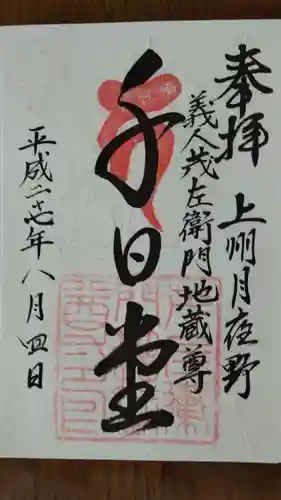 奉拝 上州月夜野
義人茂左衛門地蔵尊
千日堂
平成二十七年八月四日